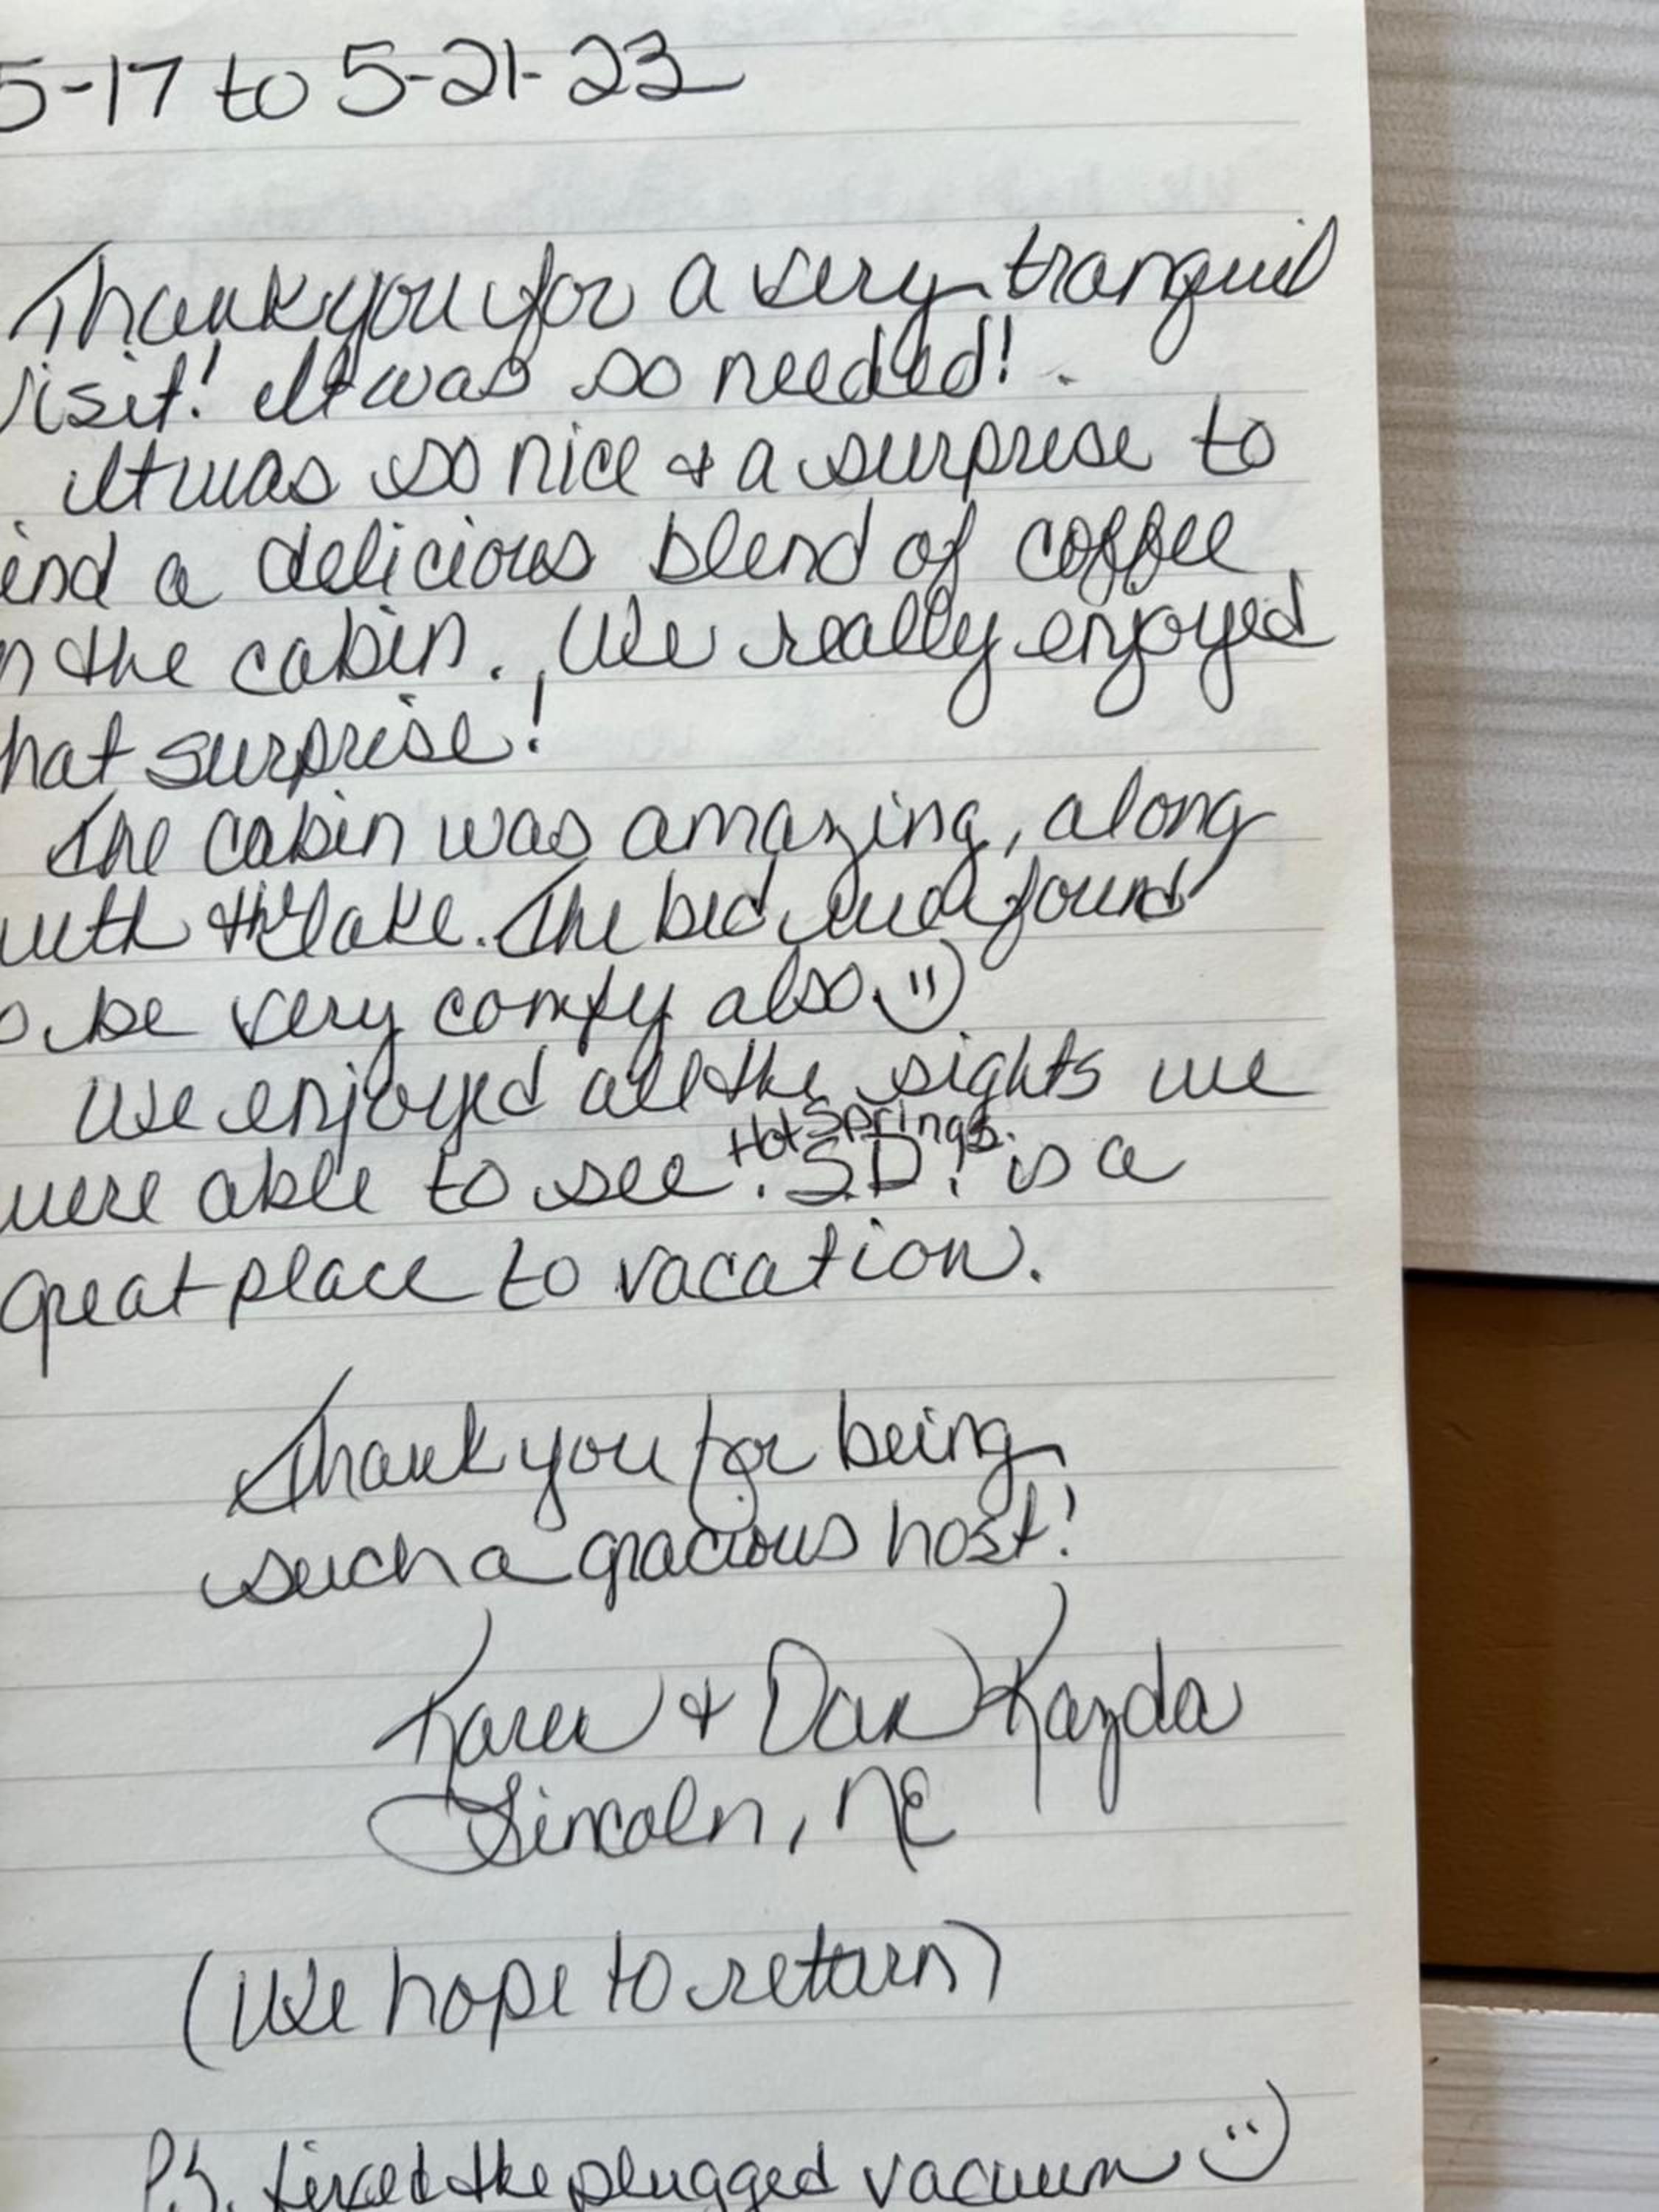 5-17 to 5-21-23
Thank you for a very tranquil
visit! It was so needed!
It was so nice & a surprise to
ind a delicious blend of coffee
n the cabin. We really enjoyed
hat surprise!
The cabin was amazing, along
with the lake. The bed we found
o be very comfy also. :)
We enjoyed all the sights we
were able to see. Hot Springs S.D. is a
great place to vacation.
Thank you for being
such a gracious host!
Karen & Dan Kazda
Lincoln, NE
(We hope to return)
P.S. fixed the plugged vacuum :)